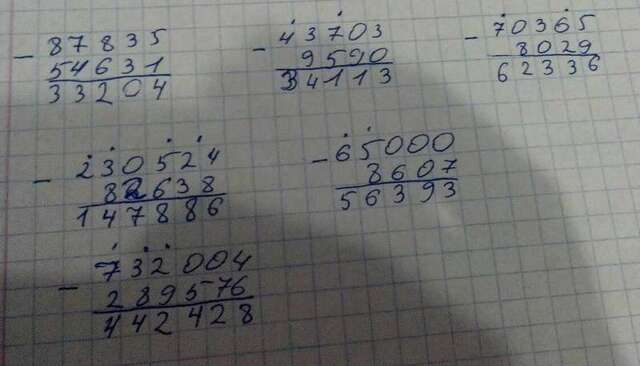 - 87835
54631
33204
- 43703
9590
34113
- 70365
8029
62336
- 230524
82638
147886
- 65000
8607
56393
- 732004
289576
442428